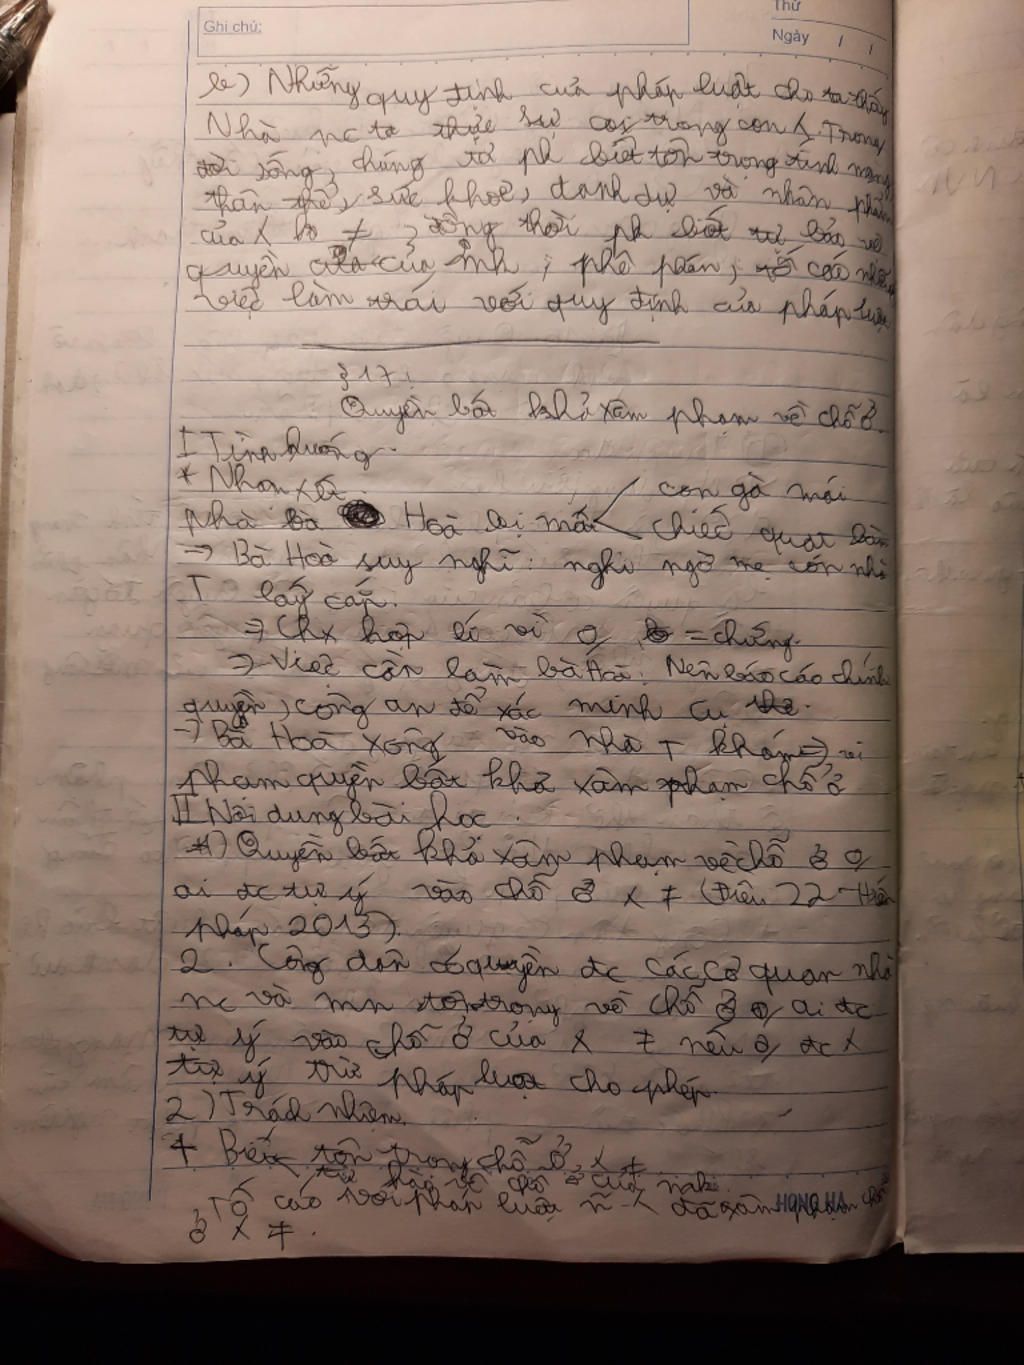 Thứ
Ghi chú:
Ngày / /
b) Những quy định của pháp luật cho ta thấy
Nhà nc ta thực sự coi trọng con X. Trong
đời sống, chúng ta ph biết tôn trọng tính mạng
thân thể, sức khoẻ, danh dự và nhân phẩm
của X ≠, đồng thời ph biết tự bảo vệ
quyền của mh, phê phán, tố cáo những
việc làm trái với quy định của pháp luật
§ 17:
Quyền bất khả xâm phạm về chỗ ở.
I Tình huống.
* Nhận xét
con gà mái
Nhà bà Hoà bị mất chiếc quạt bàn
=> Bà Hoà suy nghĩ: nghi ngờ mẹ con nhà
T lấy cắp.
=> Chx hợp lí vì = chứng.
=> Việc cần làm bà Hoà: Nên báo cáo chính
quyền, công an để xác minh cụ thể.
-> Bà Hoà xông vào nhà T khám => vi
phạm quyền bất khả xâm phạm chỗ ở
II Nội dung bài học.
1) Quyền bất khả xâm phạm về chỗ ở 0
ai đc tự ý vào chỗ ở X ≠ (Điều 22 Hiến
pháp 2013).
2. Công dân có quyền đc các cơ quan nhà
nc và mn tôn trọng về chỗ ở 0 ai đc
tự ý vào chỗ ở của X ≠ nếu 0 đc X
tự ý trừ pháp luật cho phép.
2) Trách nhiệm.
+ Biết tôn trọng chỗ ở X ≠
tự bảo vệ chỗ ở của mh
Tố cáo với pháp luật n~ X đã xâm phạm chỗ
ở X ≠.
HONG HA